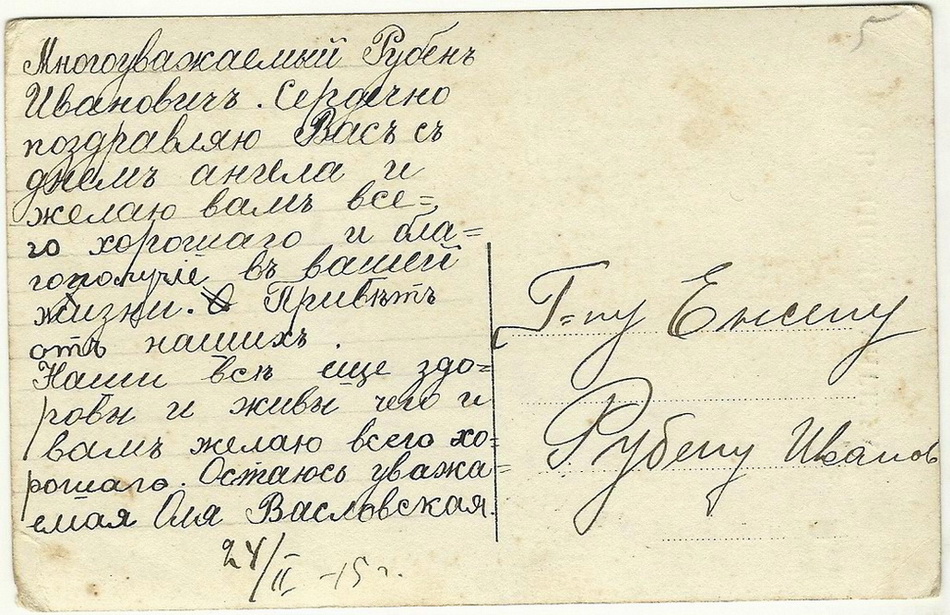 Многоуважаемый Рубенъ
Ивановичъ. Сердечно
поздравляю Васъ съ
днемъ ангела и
желаю вамъ все=
го хорошаго и бла=
гополучіе въ вашей
жизни. Привѣтъ
отъ нашихъ.
Наши всѣ еще здо=
ровы и живы чего и
вамъ желаю всего хо=
рошаго. Остаюсь уважа=
емая Оля Васловская.
24/II -15 г.
5
Г=ну
Рубену Иванов